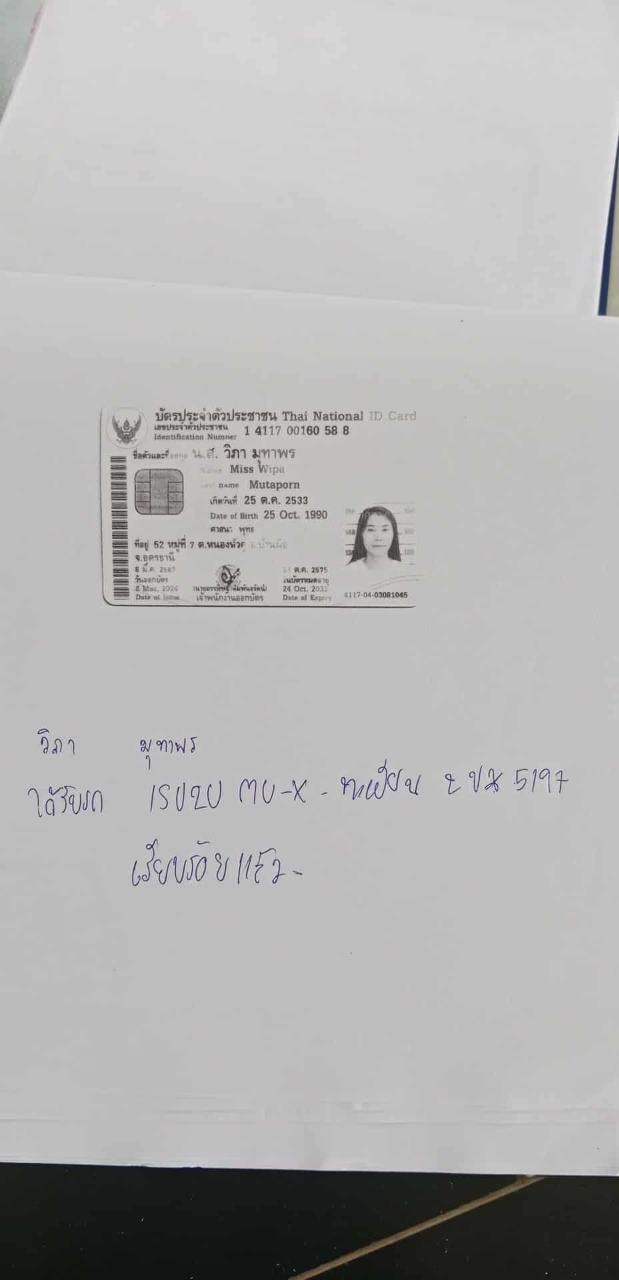 บัตรประจำตัวประชาชน Thai National ID Card
เลขประจำตัวประชาชน 1 4117 00160 58 8
Identification Number
ชื่อตัวและชื่อสกุล น.ส. วิภา มุทาพร
Name Miss Wipa
Last name Mutaporn
เกิดวันที่ 25 ต.ค. 2533
Date of Birth 25 Oct. 1990
ศาสนา พุทธ
ที่อยู่ 52 หมู่ที่ 7 ต.หนองหัวคู อ.บ้านผือ
จ.อุดรธานี
8 มี.ค. 2567
วันออกบัตร
8 Mar. 2024
Date of Issue
เจ้าพนักงานออกบัตร
ต.ค. 2575
วันบัตรหมดอายุ
24 Oct.
Date of Expiry
4117-04-03081045
วิภา มุทาพร
ได้รับรถ ISUZU MU-X - ทะเบียน 2 ขฆ 5197
เรียบร้อยแล้ว -